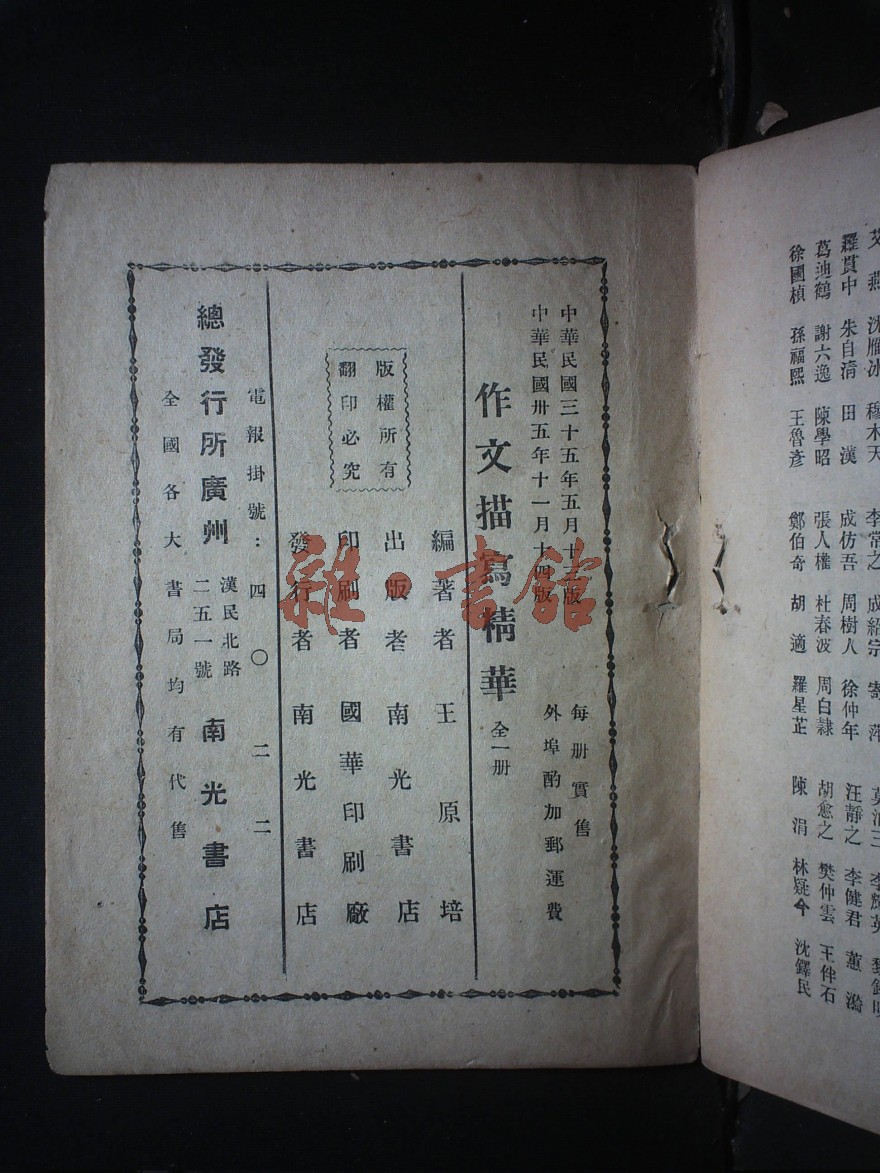 中華民國三十五年五月十三版
中華民國卅五年十一月十四版
每册實售
外埠酌加郵運費
作文描寫精華 全一册
版權所有
翻印必究
編著者 王原培
出版者 南光書店
印刷者 國華印刷廠
發行者 南光書店
電報掛號：四〇二二
總發行所廣州 漢民北路
二五一號 南光書店
全國各大書局均有代售
雜·書館
艾燕 沈雁冰 穆木天 李常之 成紹宗
羅貫中 朱自清 田漢 成仿吾 周樹人 徐仲年 汪靜之 李健君
葛迪鶴 謝六逸 陳學昭 張人權 杜春波 周白隸 胡愈之 樊仲雲 王伴石
徐國楨 孫福熙 王魯彥 鄭伯奇 胡適 羅星芷 陳涓 林疑今 沈鐸民